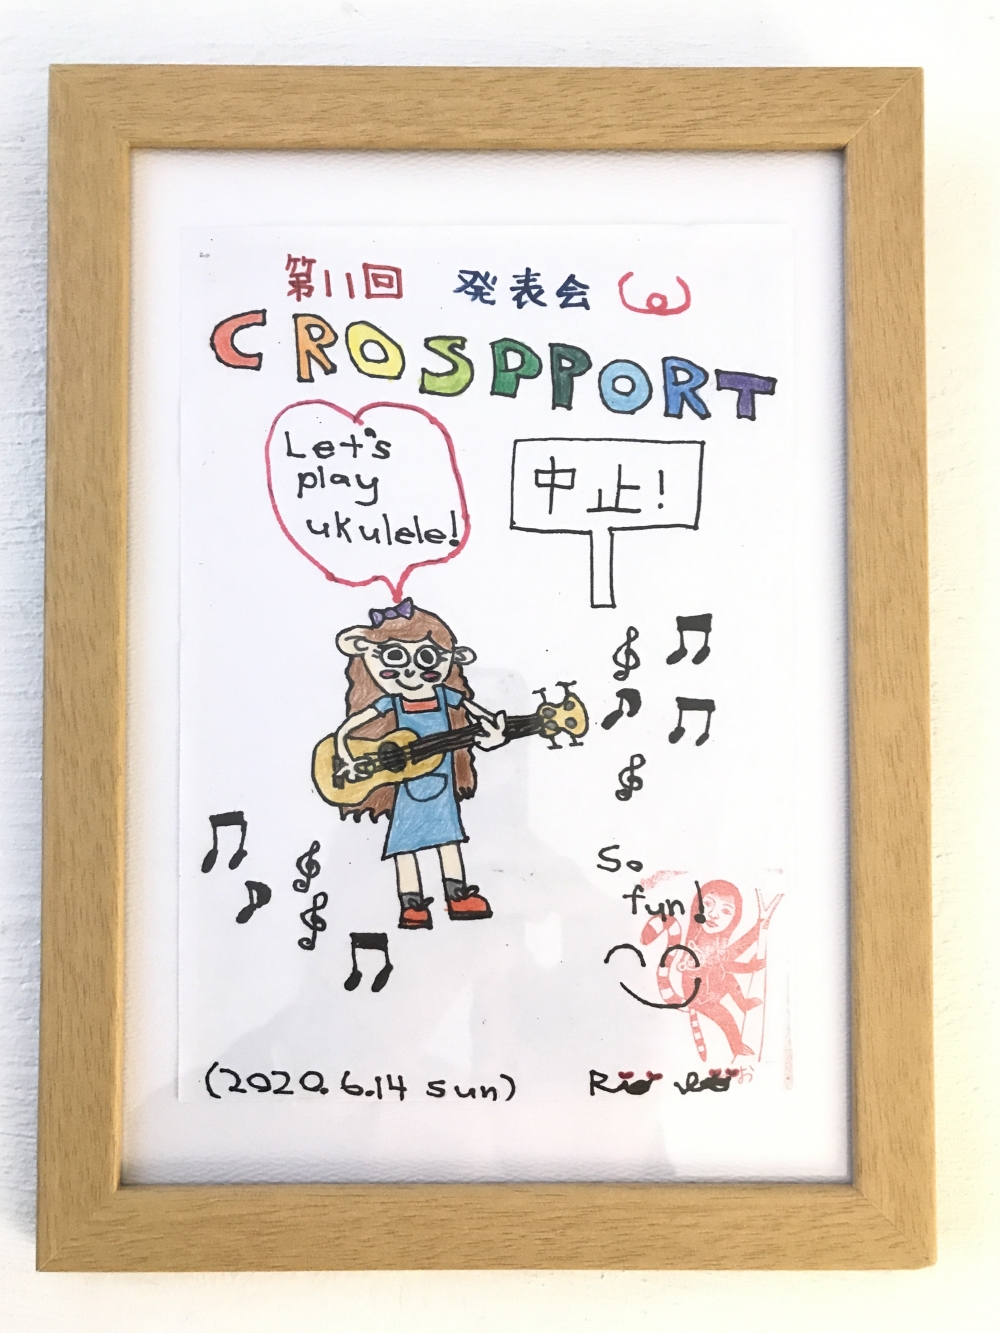 第11回 発表会
CROSPPORT
Let's
play
ukulele!
中止!
So
fun!
(2020.6.14 sun)
お